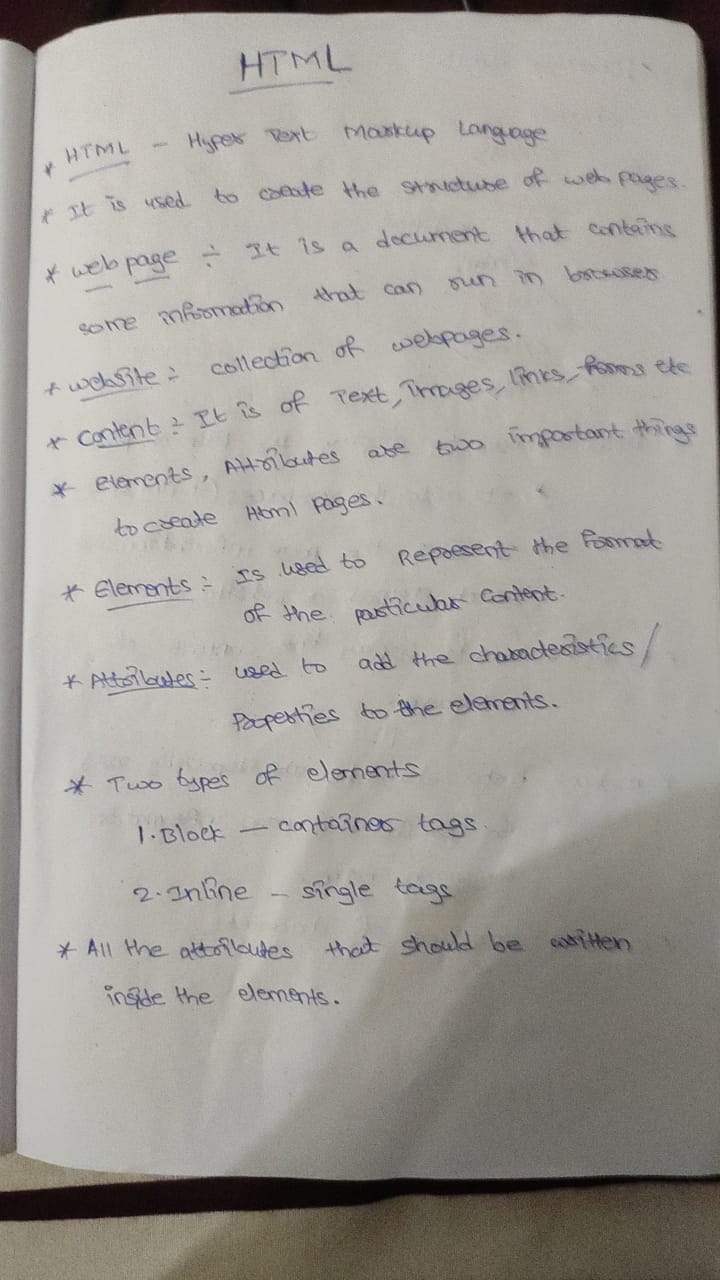 HTML
* HTML - Hyper Text Markup Language
* It is used to create the structure of web pages.
* web page :- It is a document that contains
some information that can run in browser
* website :- collection of webpages.
* Content :- It is of Text, Images, links, forms etc
* elements, Attributes are two important things
to create Html pages.
* Elements :- Is used to Represent the format
of the particular content.
* Attributes :- used to add the characteristics/
Properties to the elements.
* Two types of elements
1. Block - container tags.
2. Inline - single tags
* All the attributes that should be written
inside the elements.